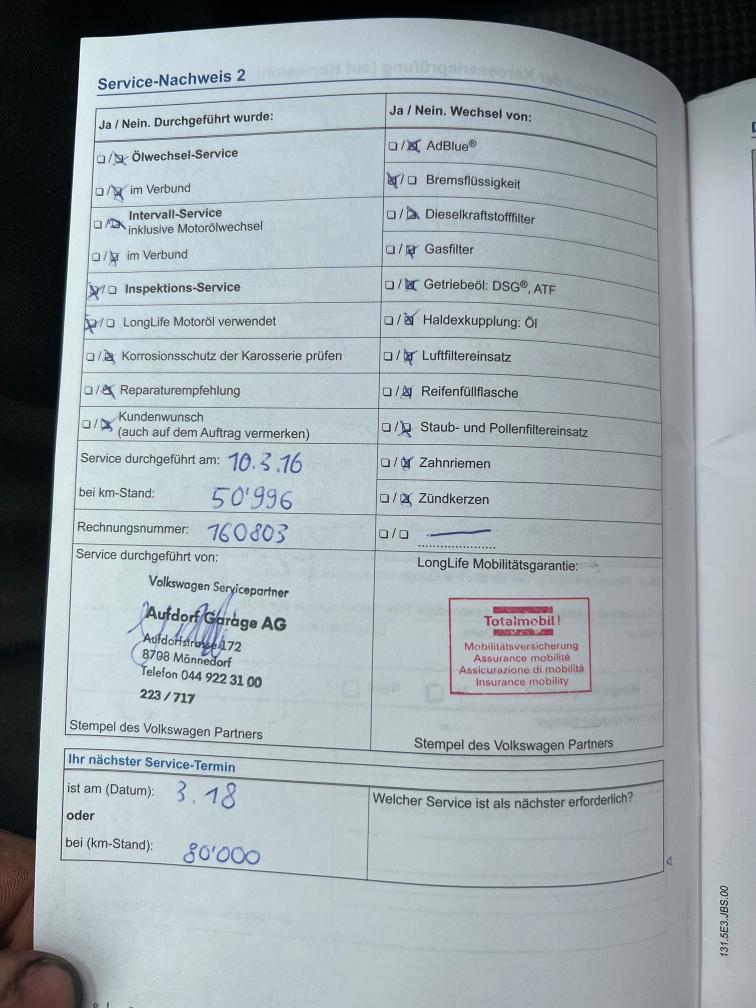 Service-Nachweis 2
Ja / Nein. Durchgeführt wurde:
☐/☒ Ölwechsel-Service
☐/☒ im Verbund
☐/☒ Intervall-Service
inklusive Motorölwechsel
☐/☒ im Verbund
☒/☐ Inspektions-Service
☒/☐ LongLife Motoröl verwendet
☐/☒ Korrosionsschutz der Karosserie prüfen
☐/☒ Reparaturempfehlung
☐/☒ Kundenwunsch
(auch auf dem Auftrag vermerken)
Service durchgeführt am: 10.3.16
bei km-Stand: 50'996
Rechnungsnummer: 160803
Service durchgeführt von:
Volkswagen Servicepartner
Aufdorf Garage AG
Aufdorfstrasse 172
8708 Männedorf
Telefon 044 922 31 00
223 / 717
Stempel des Volkswagen Partners
Ja / Nein. Wechsel von:
☐/☒ AdBlue®
☒/☐ Bremsflüssigkeit
☐/☒ Dieselkraftstofffilter
☐/☒ Gasfilter
☐/☒ Getriebeöl: DSG®, ATF
☐/☒ Haldexkupplung: Öl
☐/☒ Luftfiltereinsatz
☐/☒ Reifenfüllflasche
☐/☒ Staub- und Pollenfiltereinsatz
☐/☒ Zahnriemen
☐/☒ Zündkerzen
☐/☐
LongLife Mobilitätsgarantie:
Totalmobil!
Mobilitätsversicherung
Assurance mobilité
Assicurazione di mobilità
Insurance mobility
Stempel des Volkswagen Partners
Ihr nächster Service-Termin
ist am (Datum): 3.18
oder
bei (km-Stand): 80'000
Welcher Service ist als nächster erforderlich?
131.5E3.JBS.00